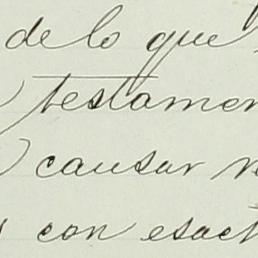 de lo que
testamen
causar
con esact